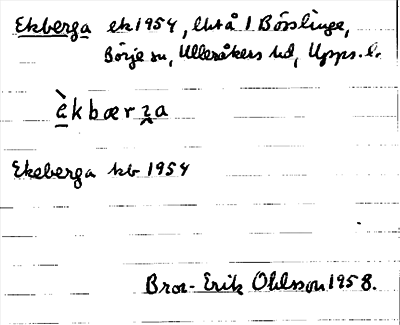 Ekberga ek 1954, Utå 1 Börslinge,
Börje sn, Ulleråkers hd, Upps. l.
èkbærza
Ekeberga kb 1954
Bror-Erik Ohlsson 1958.